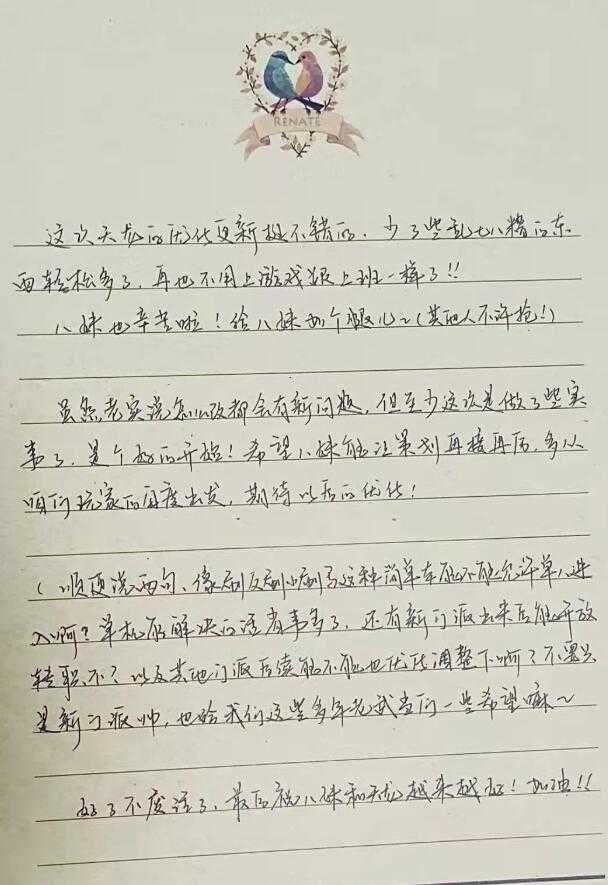 RENATE
这次天龙的优化更新挺不错的，少了些乱七八糟的东
西轻松多了，再也不用上游戏跟上班一样了!!
八妹也辛苦啦！给八妹两个暖心~(其他人不许抢!)
虽然老实说怎么改都会有新问题，但至少这次是做了些实
事了，是个好的开始！希望八妹能让策划再接再厉，多从
咱们玩家的角度出发，期待以后的优化！
(顺便说两句，像刷反刷小刷马这种简单本能不能允许单人进
入啊？单机能解决的话省事多了，还有新门派出来后能开放
转职不？以及其他门派后续能不能也优化调整下啊？不要只
是新门派帅，也给我们这些多年老武当们一些希望嘛~
好了不废话了，最后祝八妹和天龙越来越好！加油!!